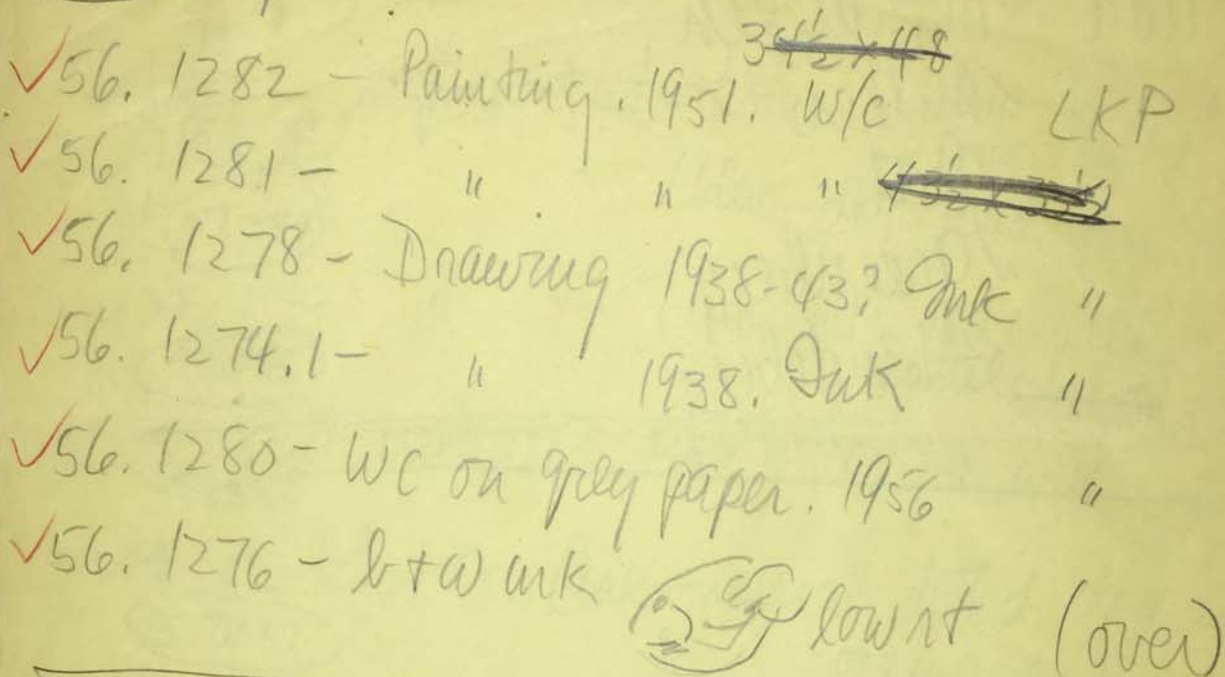 ✓56. 1282 - Painting. 1951. W/C LKP
✓56. 1281 - " " "
✓56. 1278 - Drawing 1938-43? Ink "
✓56. 1274.1 - " 1938. Ink "
✓56. 1280 - WC on grey paper. 1956 "
✓56. 1276 - b+w ink low rt (over)